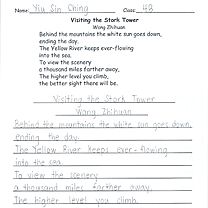 Name: Yiu Sin Ching Class: 4B
Visiting the Stork Tower
Wang Zhihuan
Behind the mountains the white sun goes down,
ending the day.
The Yellow River keeps ever-flowing
into the sea.
To view the scenery
a thousand miles farther away,
The higher level you climb,
the better sight there will be.
Visiting the Stork Tower
Wang Zhihuan
Behind the mountains the white sun goes down,
ending the day.
The Yellow River keeps ever-flowing
into the sea.
To view the scenery
a thousand miles farther away.
The higher level you climb.